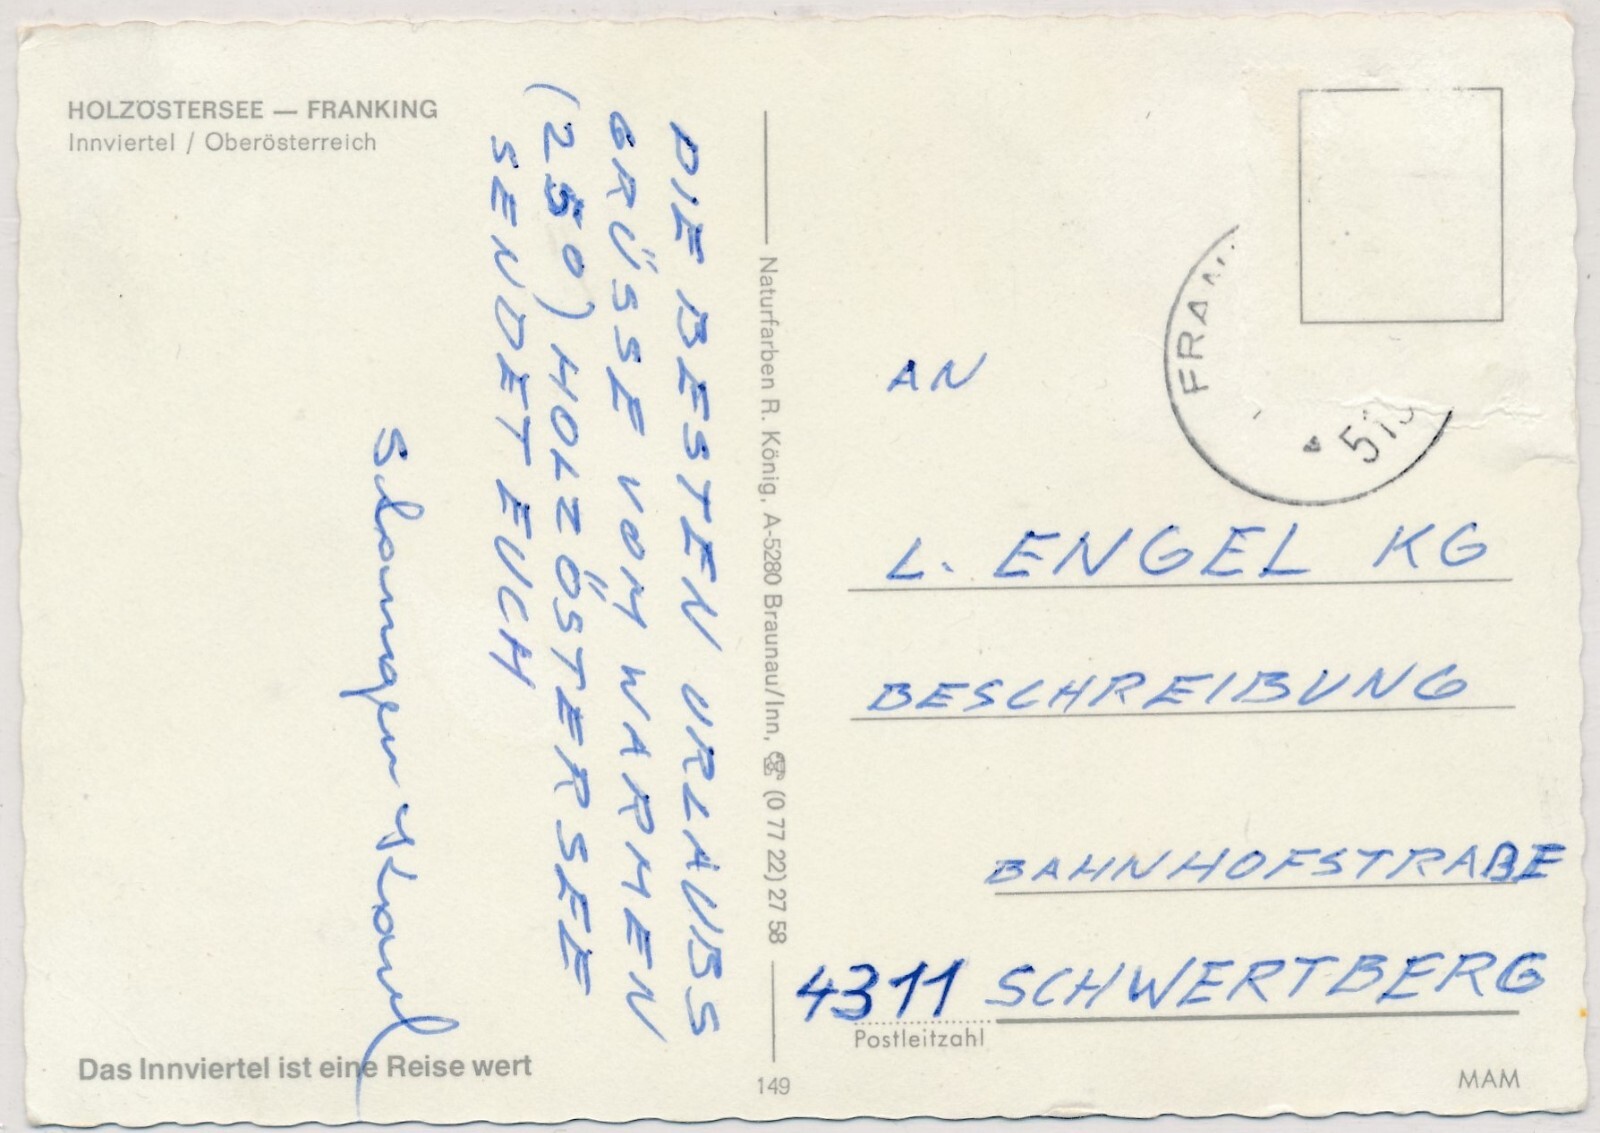 HOLZÖSTERSEE — FRANKING
Innviertel / Oberösterreich
DIE BESTEN URLAUBS
GRÜSSE VOM WARMEN
(250) HOLZÖSTERSEE
SENDET EUCH
Das Innviertel ist eine Reise wert
Naturfarben R. König, A-5280 Braunau/Inn, ☎ (0 77 22) 27 58
149
AN
L. ENGEL KG
BESCHREIBUNG
BAHNHOFSTRAßE
4311 SCHWERTBERG
Postleitzahl
MAM